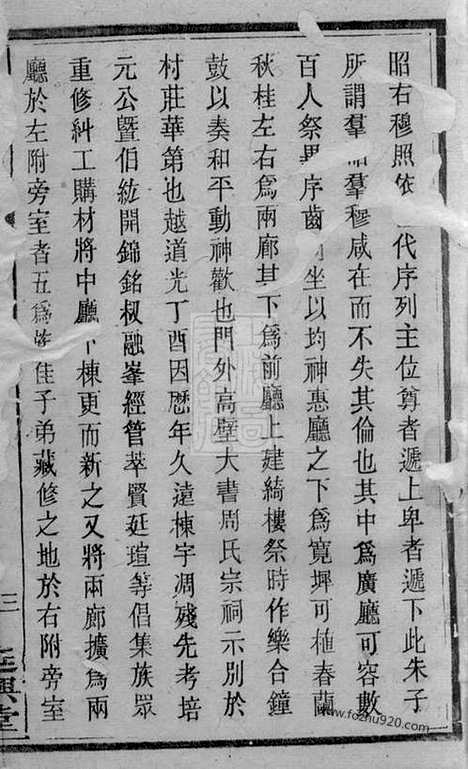 昭右穆照依代序列主位尊者遞上卑者遞下此朱子
所謂羣羣穆咸在而不失其倫也其中爲廣廳可容數
百人祭畢序齒坐以均神惠廳之下爲寛坪可植春蘭
秋桂左右爲兩廊其下爲前廳上建綺樓祭時作樂合鐘
鼓以奏和平動神歡也門外高壁大書周氏宗祠示別於
村莊華第也越道光丁酉因歷年久遠棟宇凋殘先考培
元公曁伯紘開錦銘叔融峯經管萃賢延瑄等倡集族眾
重修糾工購材將中廳下棟更而新之又將兩廊擴爲兩
廳於左附旁室者五爲佳子弟藏修之地於右附旁室
三
興堂
www.fozhu920.com